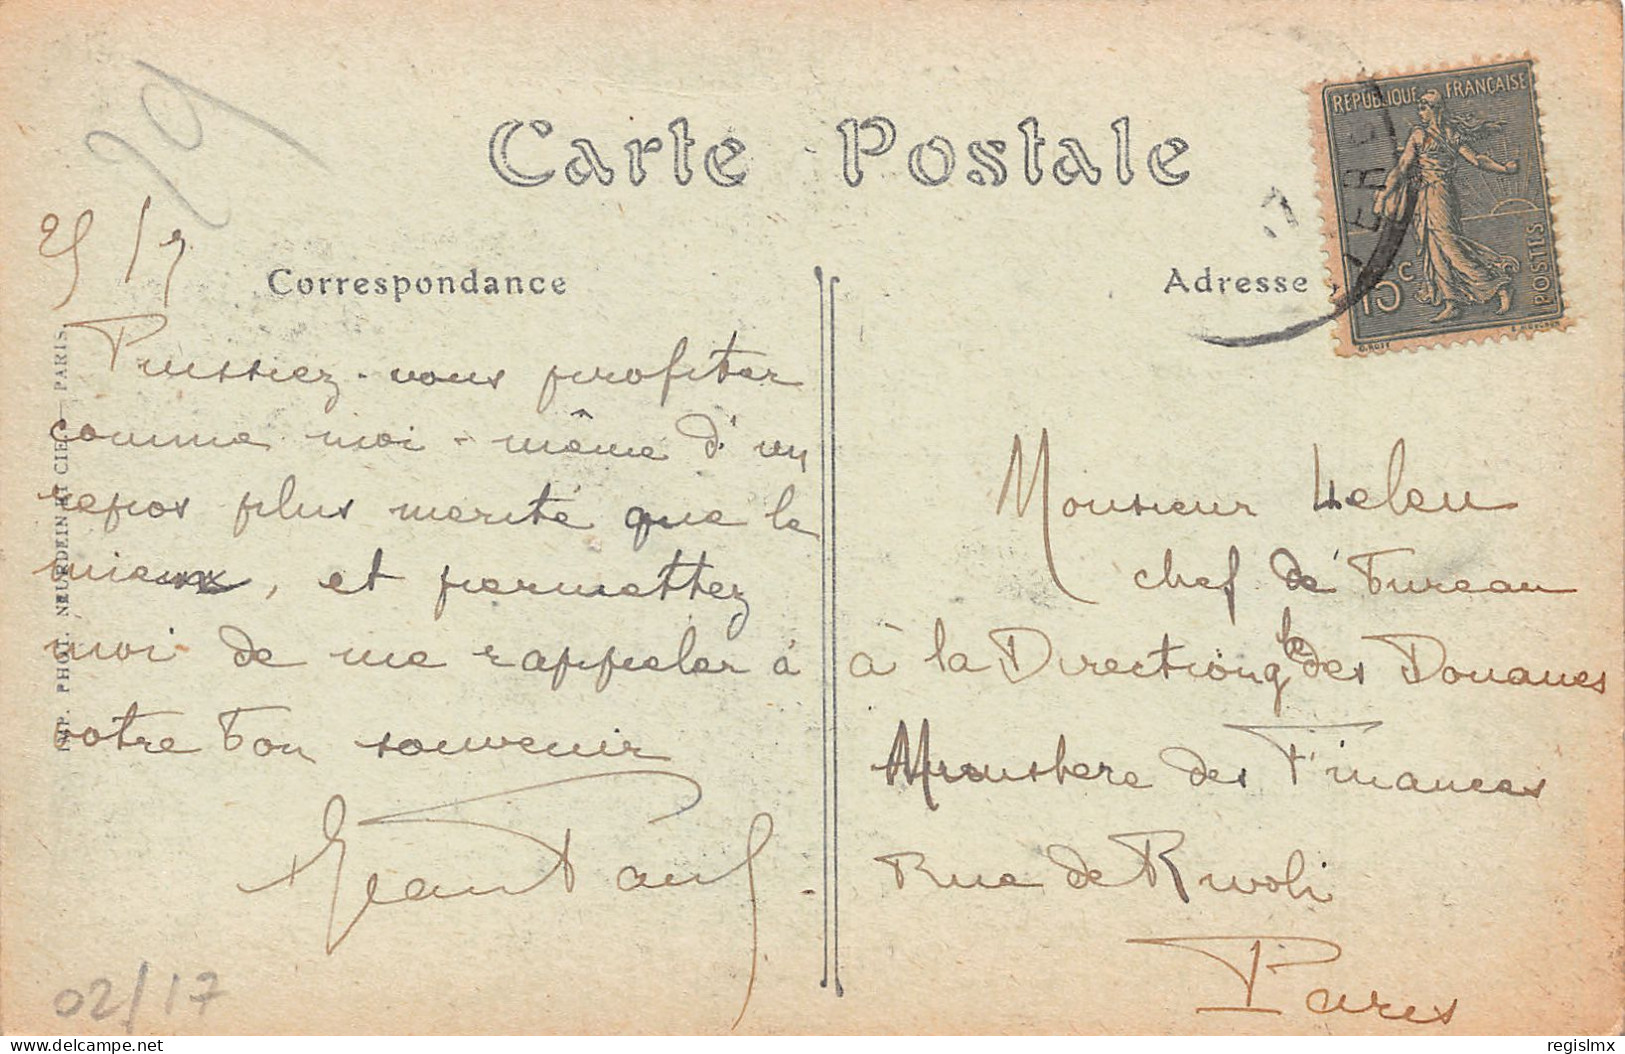 29
Carte Postale
RÉPUBLIQUE FRANÇAISE
15c
POSTES
25/7
Correspondance
Adresse
Puissiez-vous profiter
comme moi-même d'un
repos plus mérité que le
mien, et permettez
moi de me rappeler à
votre bon souvenir
Jean Paul
Monsieur Leleu
chef de Bureau
à la Direction gle des Douanes
Ministère des Finances
Rue de Rivoli
Paris
IMP. PHOT. NEURDEIN ET CIE - PARIS
02/17
regislmx